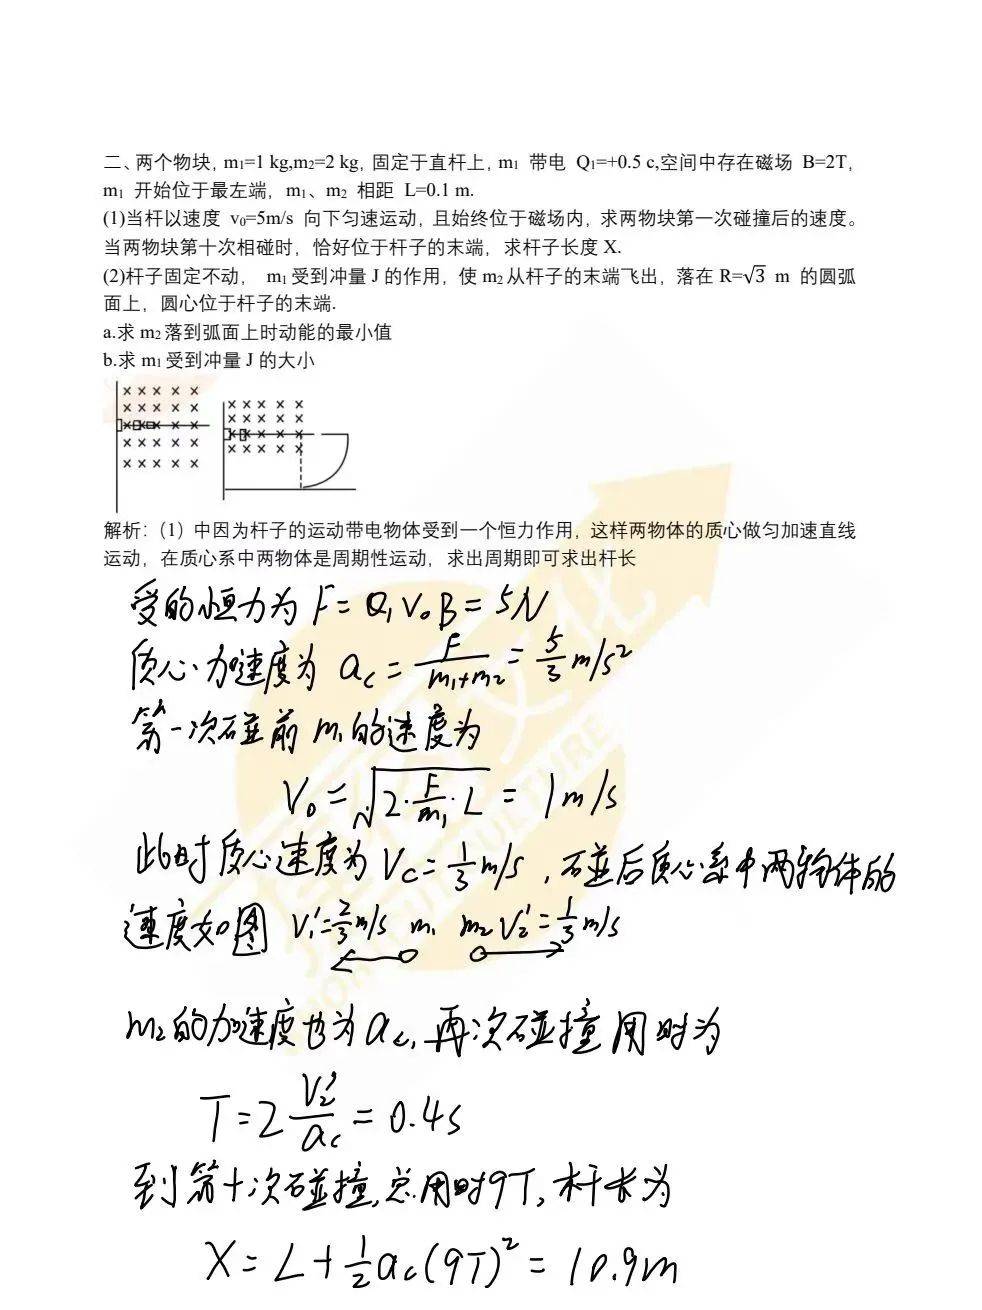 二、两个物块，m₁=1 kg,m₂=2 kg，固定于直杆上，m₁ 带电 Q₁=+0.5 c,空间中存在磁场 B=2T，
m₁ 开始位于最左端，m₁、m₂ 相距 L=0.1 m.
(1)当杆以速度 v₀=5m/s 向下匀速运动，且始终位于磁场内，求两物块第一次碰撞后的速度。
当两物块第十次相碰时，恰好位于杆子的末端，求杆子长度 X.
(2)杆子固定不动， m₁ 受到冲量 J 的作用，使 m₂ 从杆子的末端飞出，落在 R=√3 m 的圆弧
面上，圆心位于杆子的末端.
a.求 m₂ 落到弧面上时动能的最小值
b.求 m₁ 受到冲量 J 的大小
解析：（1）中因为杆子的运动带电物体受到一个恒力作用，这样两物体的质心做匀加速直线
运动，在质心系中两物体是周期性运动，求出周期即可求出杆长
受的恒力为 F = Q₁V₀B = 5N
质心加速度为 a_c = F/(m₁+m₂) = 5/3 m/s²
第一次碰前 m₁的速度为
V₀ = √(2·F/m₁·L) = 1m/s
此时质心速度为 V_c = 1/3 m/s，碰后质心系中两物体的
速度如图 V₁' = 2/3 m/s m₁ m₂ V₂' = 1/3 m/s
m₂的加速度也为a_c，再次碰撞用时为
T = 2 V₂'/a_c = 0.4s
到第十次碰撞，总用时9T，杆长为
X = L + 1/2 a_c(9T)² = 10.9m